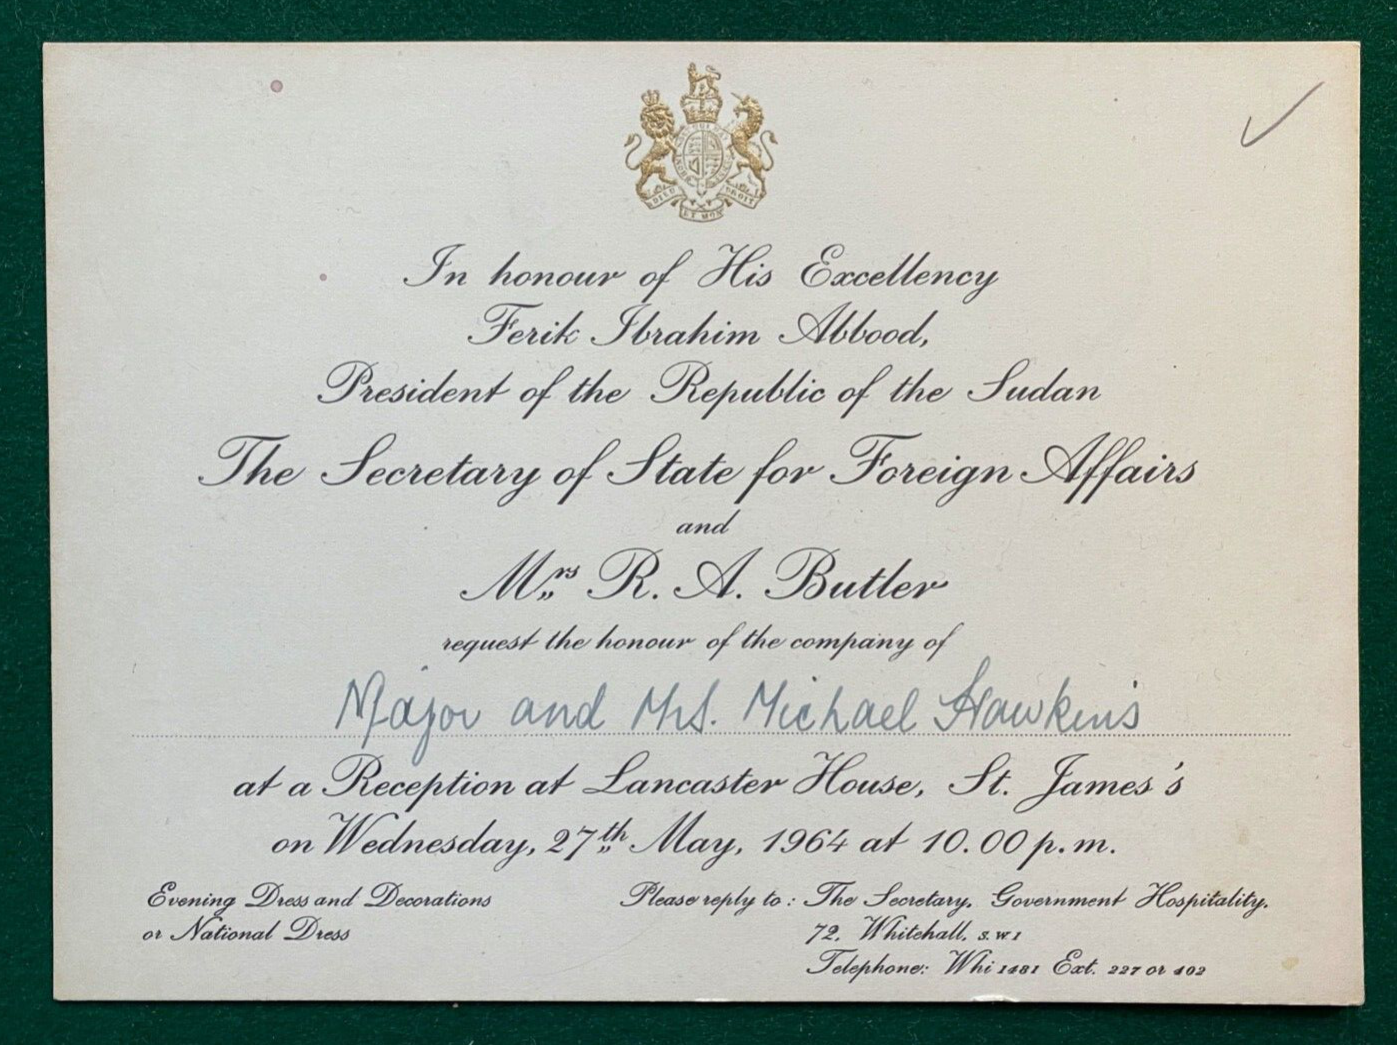 DIEU ET MON DROIT
In honour of His Excellency
Ferik Ibrahim Abbood,
President of the Republic of the Sudan
The Secretary of State for Foreign Affairs
and
Mrs R. A. Butler
request the honour of the company of
Major and Mrs. Michael Hawkins
at a Reception at Lancaster House, St. James's
on Wednesday, 27th May, 1964 at 10.00 p.m.
Evening Dress and Decorations
or National Dress
Please reply to: The Secretary, Government Hospitality,
72, Whitehall, S.W.1
Telephone: Whi 1481 Ext. 227 or 402